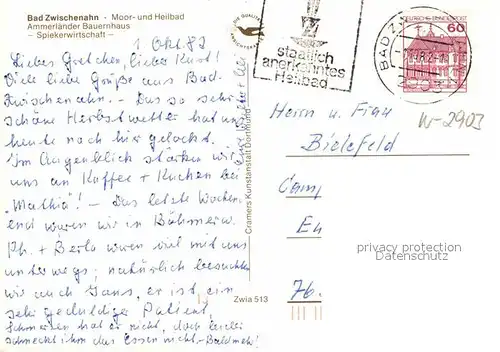 Bad Zwischenahn - Moor- und Heilbad
Ammerländer Bauernhaus
– Spiekerwirtschaft –
1. Okt. 82
Liebes Gretchen, lieber Kurt!
Viele liebe Grüße aus Bad-
Zwischenahn. – Das so sehr
schöne Herbstwetter hat uns
heute noch hier gelockt.
Im Augenblick stärken wir
uns an Kaffee + Kuchen bei
"Mathia"! – Das letzte Wochen-
end waren wir in Böhmerw.
Ph. + Berta waren viel mit uns
unterwegs; natürlich besuchten
wir auch Hans, er ist ein
sehr geduldiger Patient,
Schmerzen hat er nicht, doch leider
schmeckt ihm das Essen nicht. – Bald mehr!
Cramers Kunstanstalt Dortmund
Zwia 513
staatlich
anerkanntes
Heilbad
DEUTSCHE BUNDESPOST
60
BAD ZW
W-2903
Herrn u. Frau
Bielefeld
Camp
En
76.
privacy protection
Datenschutz